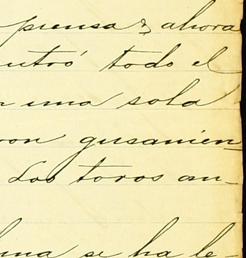 prensa & ahora
ntró todo el
una sola
ron gusanien
Los toros an-
una se ha le-